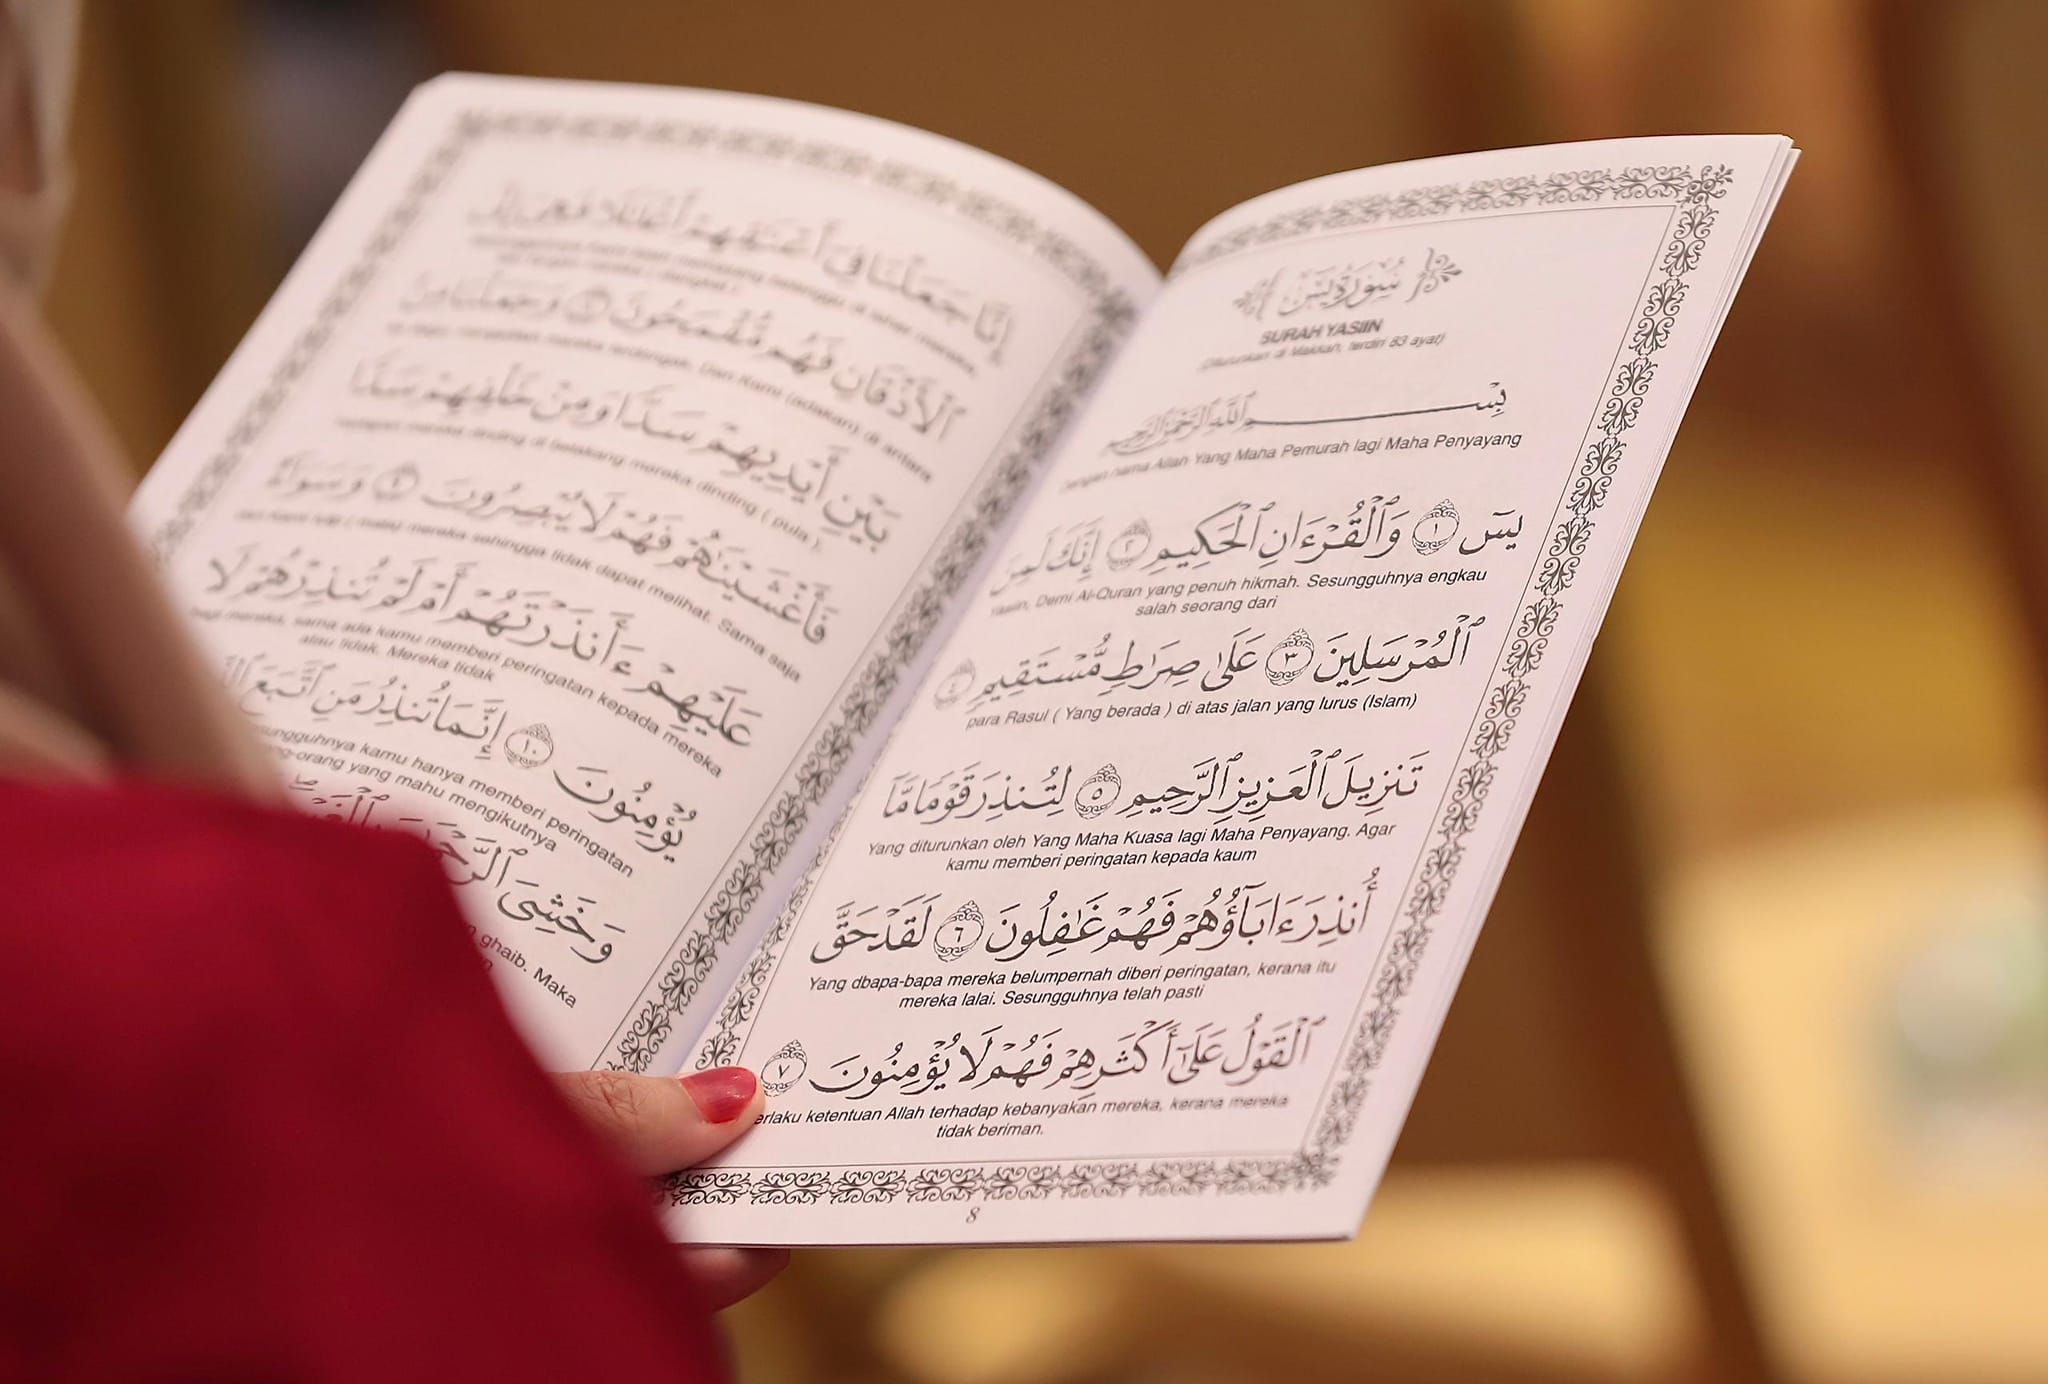 سُورَةُ يسٓ
SURAH YASIIN
(Diturunkan di Makkah, terdiri 83 ayat)
بِسْمِ اللَّهِ الرَّحْمَٰنِ الرَّحِيمِ
Dengan nama Allah Yang Maha Pemurah lagi Maha Penyayang
يسٓ ١ وَٱلْقُرْءَانِ ٱلْحَكِيمِ ٢ إِنَّكَ لَمِنَ
Yasiin, Demi Al-Quran yang penuh hikmah. Sesungguhnya engkau
salah seorang dari
ٱلْمُرْسَلِينَ ٣ عَلَىٰ صِرَٰطٍ مُّسْتَقِيمٍ ٤
para Rasul ( Yang berada ) di atas jalan yang lurus (Islam)
تَنزِيلَ ٱلْعَزِيزِ ٱلرَّحِيمِ ٥ لِتُنذِرَ قَوْمًا مَّآ
Yang diturunkan oleh Yang Maha Kuasa lagi Maha Penyayang. Agar
kamu memberi peringatan kepada kaum
أُنذِرَ ءَابَآؤُهُمْ فَهُمْ غَٰفِلُونَ ٦ لَقَدْ حَقَّ
Yang dbapa-bapa mereka belumpernah diberi peringatan, kerana itu
mereka lalai. Sesungguhnya telah pasti
ٱلْقَوْلُ عَلَىٰٓ أَكْثَرِهِمْ فَهُمْ لَا يُؤْمِنُونَ ٧
erlaku ketentuan Allah terhadap kebanyakan mereka, kerana mereka
tidak beriman.
8
إِنَّا جَعَلْنَا فِىٓ أَعْنَٰقِهِمْ أَغْلَٰلًا فَهِىَ إِلَى
di leher mereka,
ٱلْأَذْقَانِ فَهُم مُّقْمَحُونَ ٨ وَجَعَلْنَا مِنۢ
mereka tertengadah. Dan Kami (adakan) di antara
بَيْنِ أَيْدِيهِمْ سَدًّا وَمِنْ خَلْفِهِمْ سَدًّا
mereka dinding di belakang mereka dinding ( pula ),
فَأَغْشَيْنَٰهُمْ فَهُمْ لَا يُبْصِرُونَ ٩ وَسَوَآءٌ
mereka sehingga tidak dapat melihat. Sama saja
عَلَيْهِمْ ءَأَنذَرْتَهُمْ أَمْ لَمْ تُنذِرْهُمْ لَا
bagi mereka, sama ada kamu memberi peringatan kepada mereka
atau tidak. Mereka tidak
يُؤْمِنُونَ ١٠ إِنَّمَا تُنذِرُ مَنِ ٱتَّبَعَ
sungguhnya kamu hanya memberi peringatan
ng-orang yang mahu mengikutnya
وَخَشِىَ ٱلرَّحْمَٰنَ
ghaib. Maka